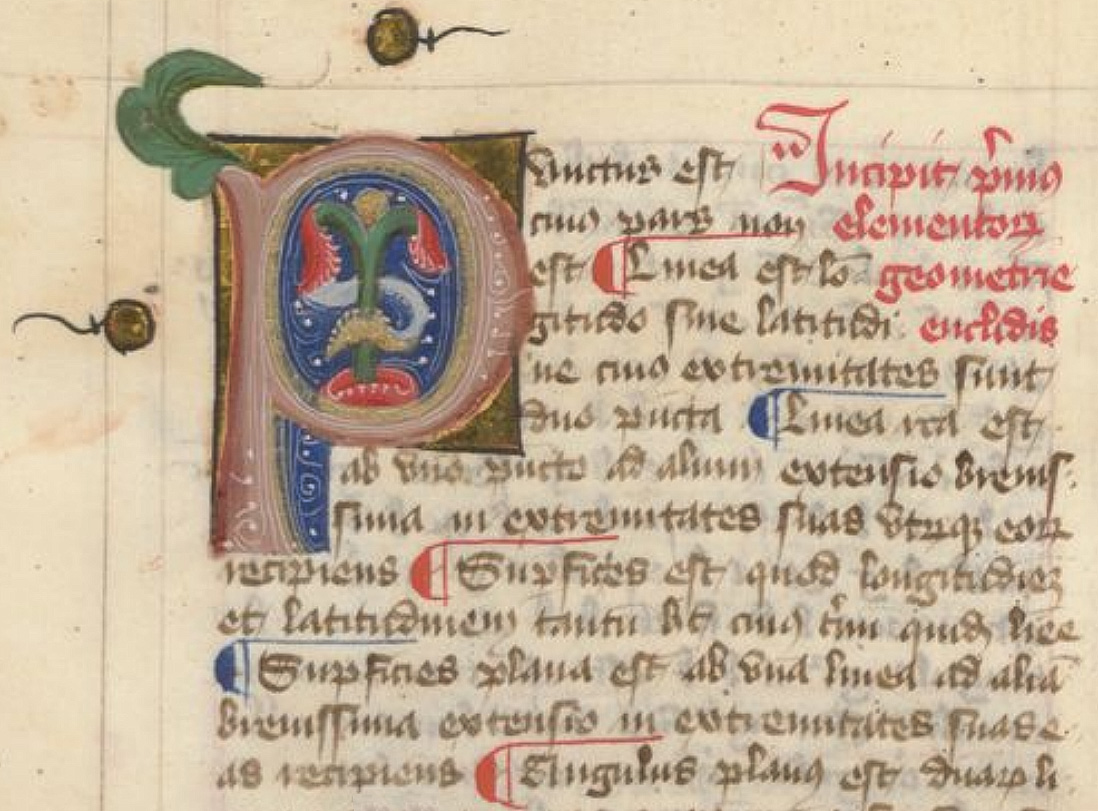 Punctus est Incipit pͥmꝰ
cuiꝰ pars non elementoꝝ
est ¶ Linea est lō geometrie
gitudo sine latitudi euclidis
ne cuiꝰ extremitates sunt
duo pūcta ¶ Linea rcā est
ab vno pūcto ad alium extensio breuis
sima in extremitates suas vtrūqꝫ eoꝝ
recipiens ¶ Supficies est quod longitudīeꝫ
et latitudinem tantū hꝫ cuiꝰ tͥmi quidē līee
¶ Supficies plana est ab vna linea ad aliā
breuissima extensio in extremitates suas e
as recipiens ¶ Angulus planꝰ est duaꝝ li